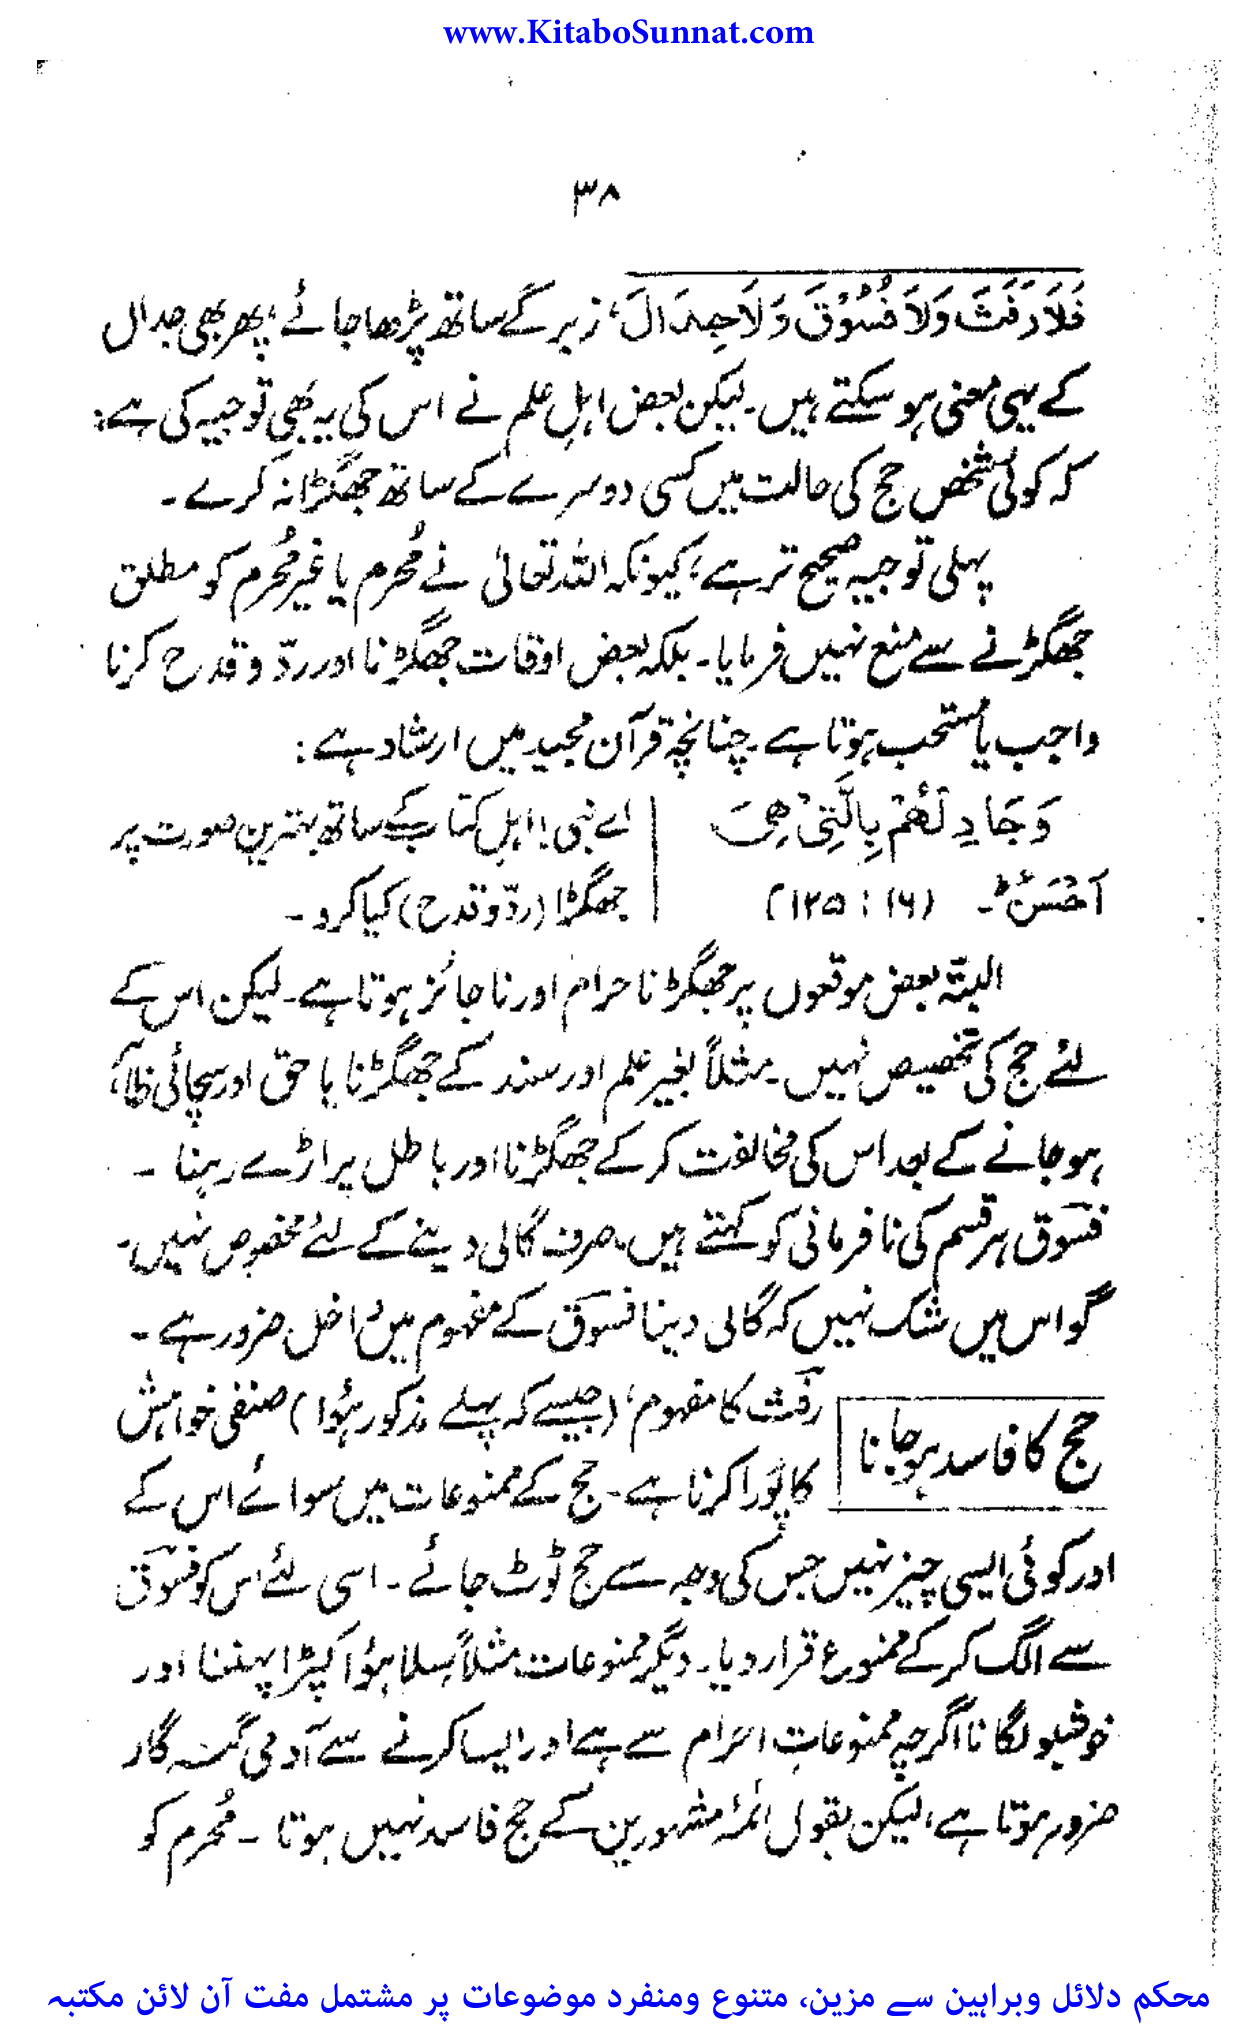 www.KitaboSunnat.com
۳۸
فَلَا رَفَثَ وَلَا فُسُوْقَ وَلَا جِدَالَ، زبر کے ساتھ پڑھا جائے، پھر بھی جدال
کے یہی معنی ہو سکتے ہیں۔ لیکن بعض اہلِ علم نے اس کی یہ بھی توجیہ کی ہے:
کہ کوئی شخص حج کی حالت میں کسی دوسرے کے ساتھ جھگڑا نہ کرے۔
پہلی توجیہ صحیح تر ہے، کیونکہ اللہ تعالیٰ نے مُحرم یا غیر مُحرم کو مطلق
جھگڑنے سے منع نہیں فرمایا۔ بلکہ بعض اوقات جھگڑنا اور ردّ و قدح کرنا
واجب یا مستحب ہوتا ہے۔ چنانچہ قرآن مجید میں ارشاد ہے:
وَجَادِلْهُمْ بِالَّتِيْ هِيَ | اے نبی! اہلِ کتاب کے ساتھ بہترین صورت پر
اَحْسَنُ ؕ۔ (۱۶ : ۱۲۵) | جھگڑا (ردّ و قدح) کیا کرو۔
البتّہ بعض موقعوں پر جھگڑنا حرام اور ناجائز ہوتا ہے۔ لیکن اس کے
لئے حج کی تخصیص نہیں۔ مثلاً بغیر علم اور سند کے جھگڑنا یا حق اور سچائی ظاہر
ہو جانے کے بعد اس کی مخالفت کر کے جھگڑنا اور باطل پر اڑے رہنا۔
فسوق ہر قسم کی نافرمانی کو کہتے ہیں، صرف گالی دینے کے لئے مخصوص نہیں۔
گو اس میں شک نہیں کہ گالی دینا فسوق کے مفہوم میں داخل ضرور ہے۔
حج کا فاسد ہو جانا
رفث کا مفہوم، (جیسے کہ پہلے مذکور ہُوا) صنفی خواہش
کا پُورا کرنا ہے۔ حج کے ممنوعات میں سوائے اس کے
اور کوئی ایسی چیز نہیں جس کی وجہ سے حج ٹوٹ جائے۔ اسی لئے اس کو فسوق
سے الگ کر کے ممنوع قرار دیا۔ دیگر ممنوعات مثلاً سِلا ہوُا کپڑا پہننا اور
خوشبو لگانا اگرچہ ممنوعاتِ احرام سے ہے اور ایسا کرنے سے آدمی گنہ گار
ضرور ہوتا ہے، لیکن بقول ائمۂ مشہورین کے حج فاسد نہیں ہوتا۔ مُحرم کو
محکم دلائل وبراہین سے مزین، متنوع ومنفرد موضوعات پر مشتمل مفت آن لائن مکتبہ